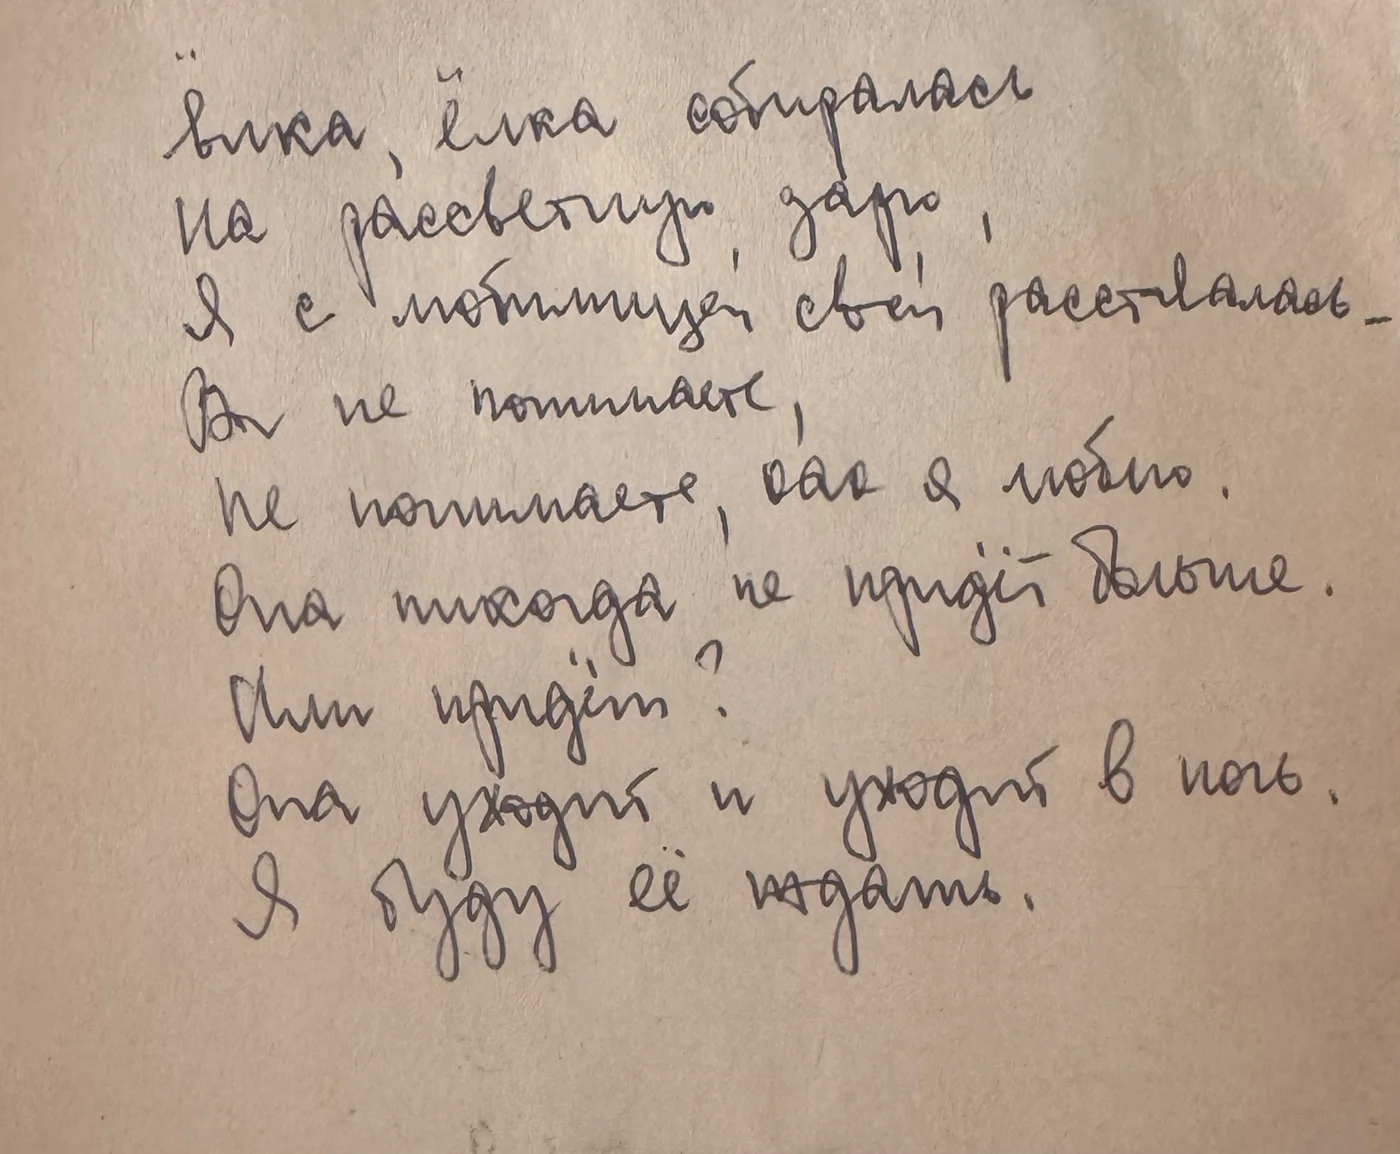 Ёлка, ёлка собиралась
На рассветную зарю,
Я с любимицей своей расставалась –
Вы не понимаете,
не понимаете, как я люблю.
Она никогда не придёт больше.
Или придёт?
Она уходит и уходит в ночь.
Я буду её ждать.